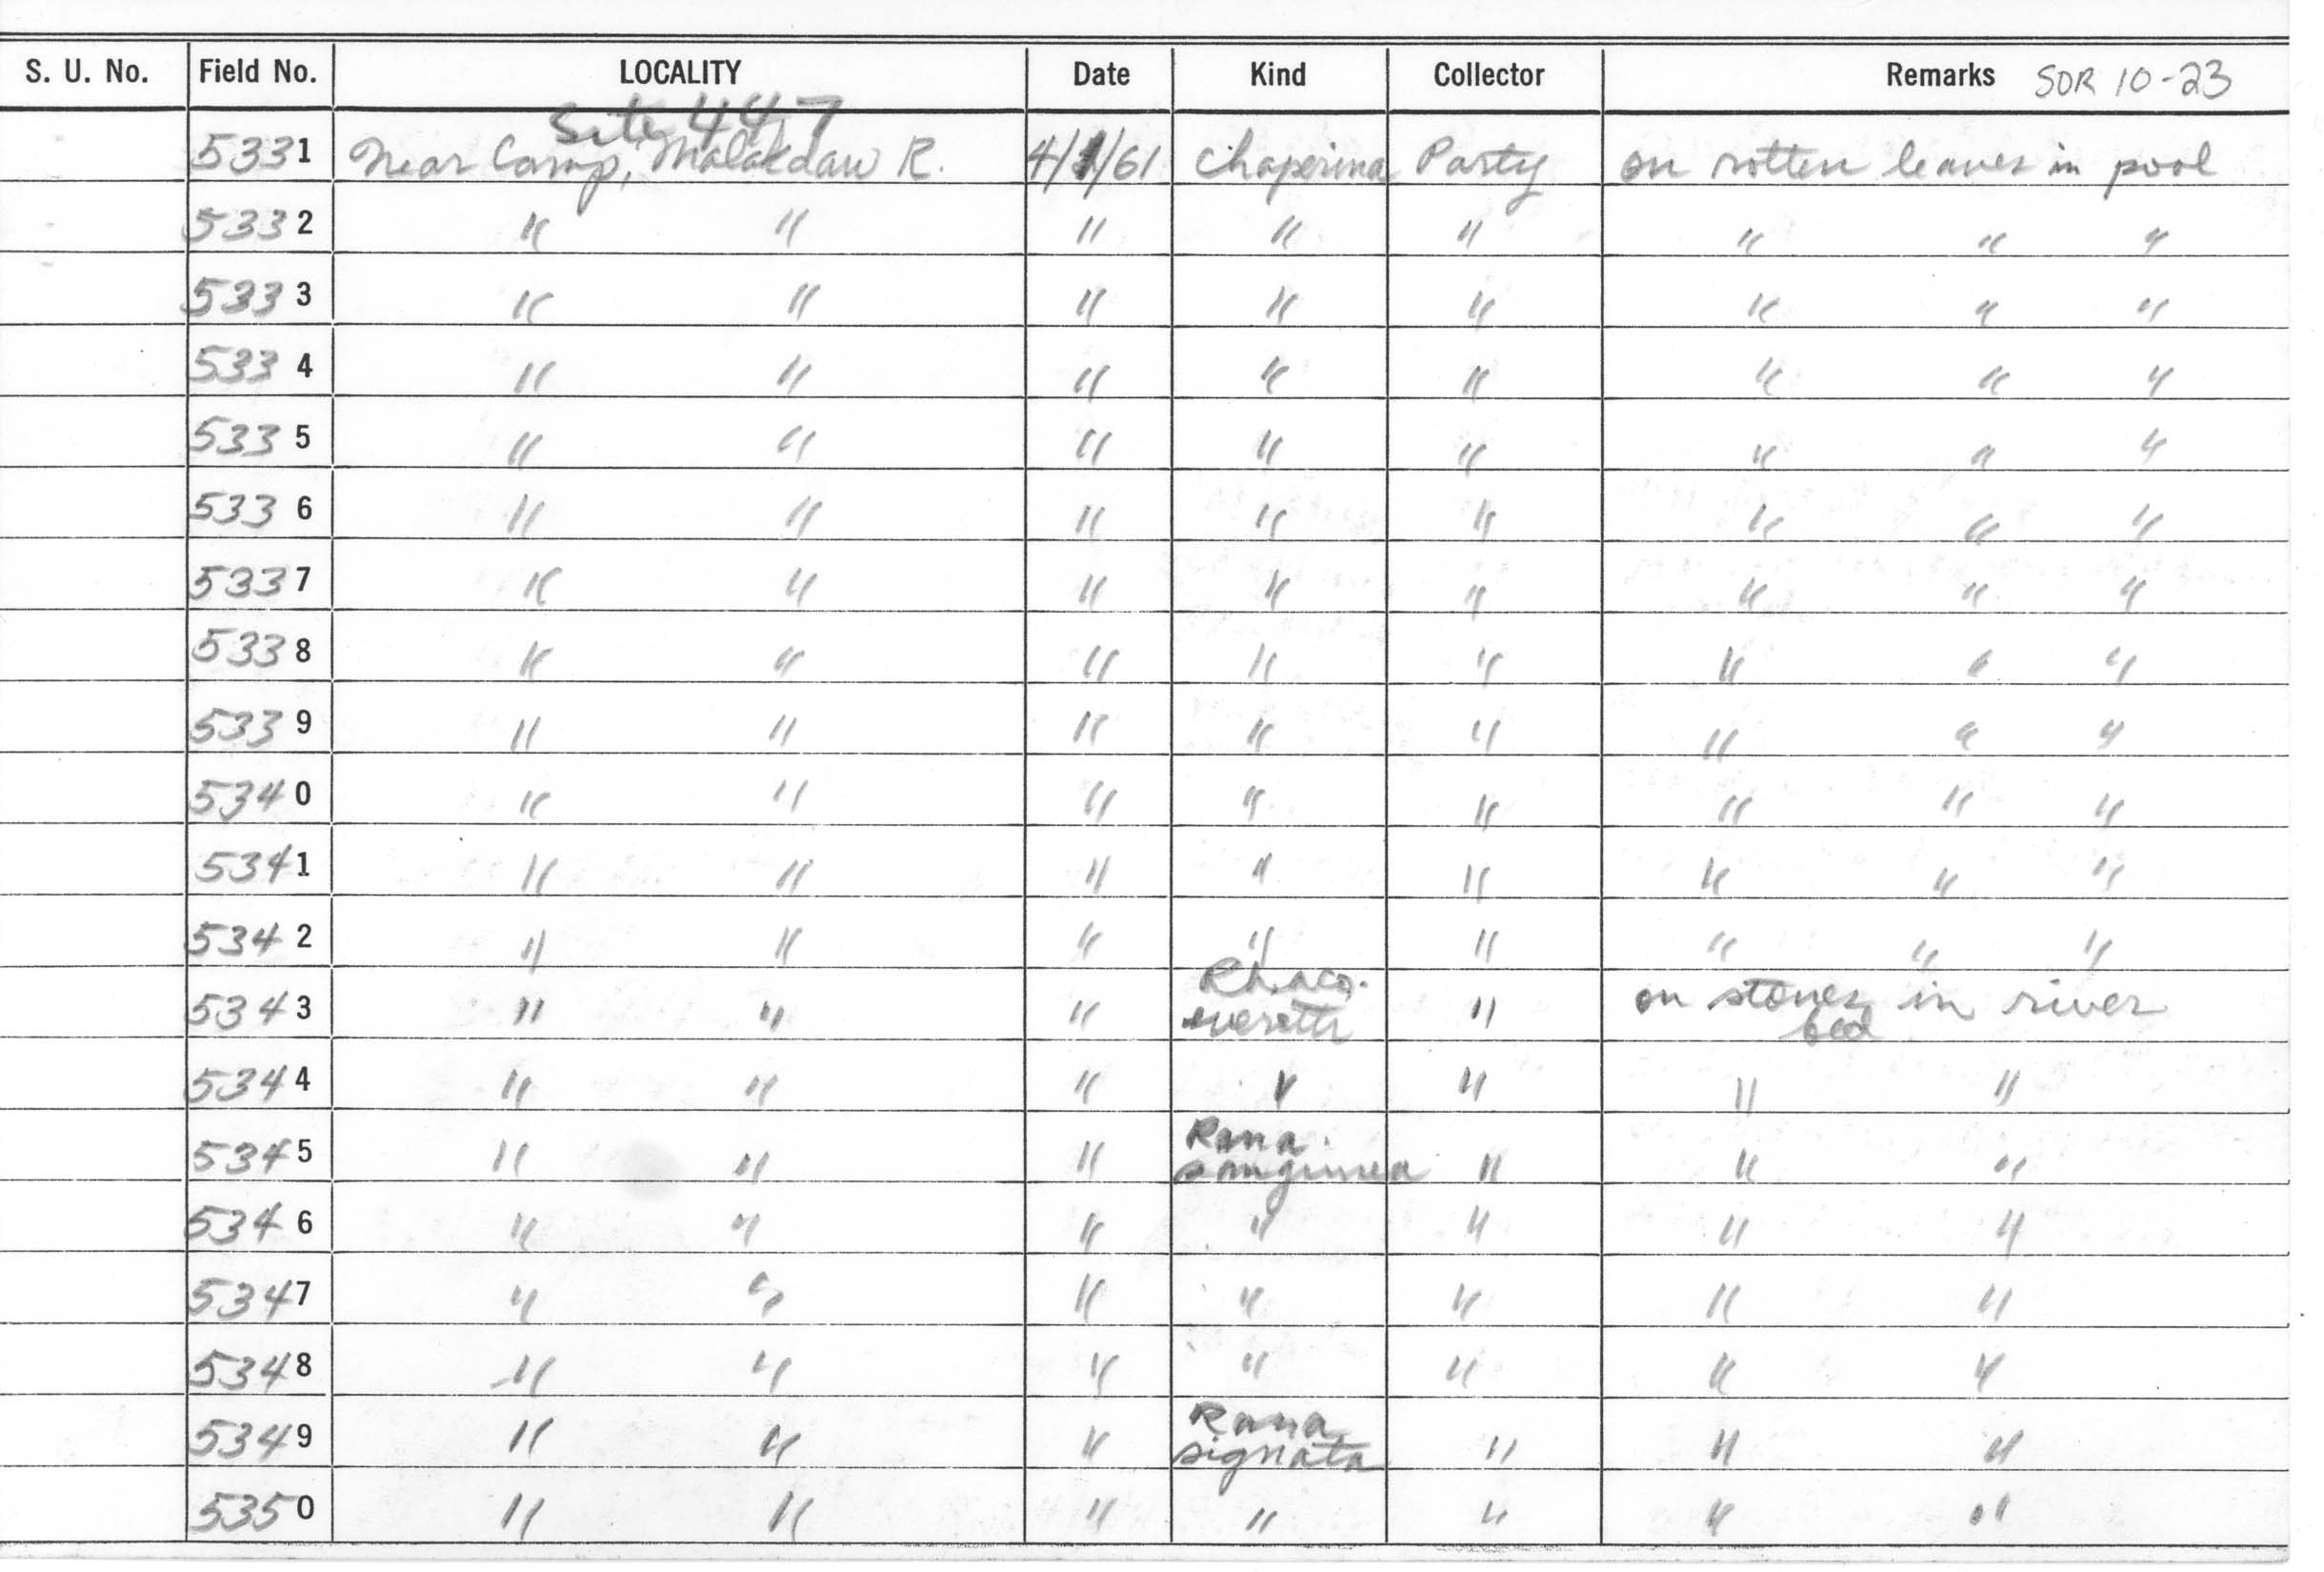 S. U. No. Field No. LOCALITY Date Kind Collector Remarks SOR 10-23
Site 447
5331 Near Camp, Malakdau R. 4/1/61 Chaperina Party on rotten leaves in pool
5332 " " " " " " " "
5333 " " " " " " " "
5334 " " " " " " " "
5335 " " " " " " " "
5336 " " " " " " " "
5337 " " " " " " " "
5338 " " " " " " " "
5339 " " " " " " " "
5340 " " " " " " " "
5341 " " " " " " " "
5342 " " " " " " " "
5343 " " " Rhaco. everetti " on stones in river bed
5344 " " " " " " "
5345 " " " Rana sanguinea " " "
5346 " " " " " " "
5347 " " " " " " "
5348 " " " " " " "
5349 " " " Rana signata " " "
5350 " " " " " " "